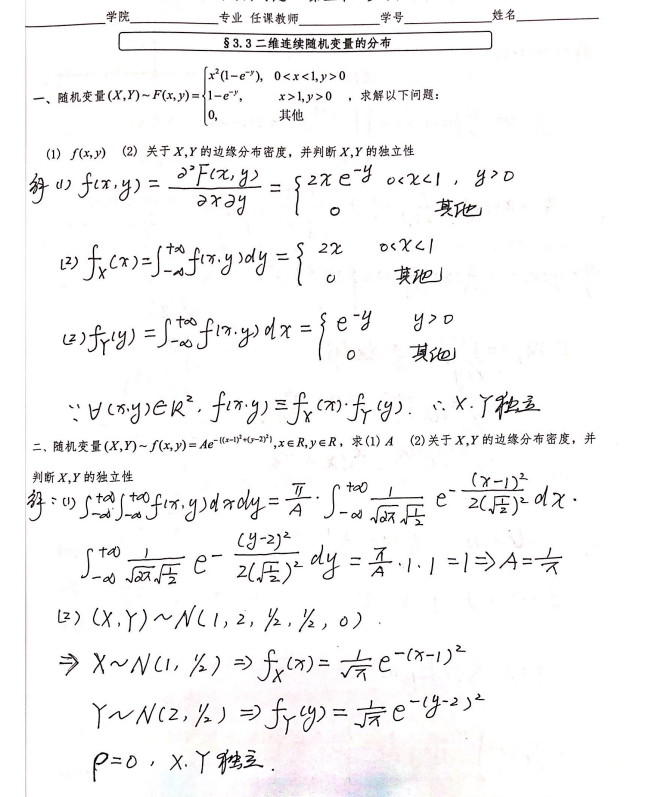 学院 专业 任课教师 学号 姓名
§3.3 二维连续随机变量的分布
一、随机变量(X,Y)~F(x,y)={x²(1-e^{-y}), 0<x<1,y>0
1-e^{-y}, x>1,y>0 ，求解以下问题：
0, 其他
(1) f(x,y) (2) 关于X,Y的边缘分布密度，并判断X,Y的独立性
解 (1) f(x,y) = ∂²F(x,y)/∂x∂y = {2xe^{-y} 0<x<1, y>0
0 其他
(2) f_X(x)=∫_{-∞}^{+∞} f(x,y)dy = {2x 0<x<1
0 其他
(2) f_Y(y)=∫_{-∞}^{+∞} f(x,y)dx = {e^{-y} y>0
0 其他
∵∀(x,y)∈R², f(x,y)≡f_X(x)·f_Y(y). ∴X,Y独立
二、随机变量(X,Y)~f(x,y)=Ae^{-{(x-1)²+(y-2)²}},x∈R,y∈R，求(1) A (2)关于X,Y的边缘分布密度，并
判断X,Y的独立性
解：(1) ∫_{-∞}^{+∞}∫_{-∞}^{+∞} f(x,y)dxdy = π/A · ∫_{-∞}^{+∞} 1/(√2π √(1/2)) e^{-(x-1)²/(2(√(1/2))²)} dx·
∫_{-∞}^{+∞} 1/(√2π √(1/2)) e^{-(y-2)²/(2(√(1/2))²)} dy = π/A ·1·1=1⇒A=1/π
(2) (X,Y)~N(1,2,1/2,1/2,0).
⇒ X~N(1,1/2)⇒f_X(x)=1/√π e^{-(x-1)²}
Y~N(2,1/2)⇒f_Y(y)=1/√π e^{-(y-2)²}
ρ=0, X,Y独立.